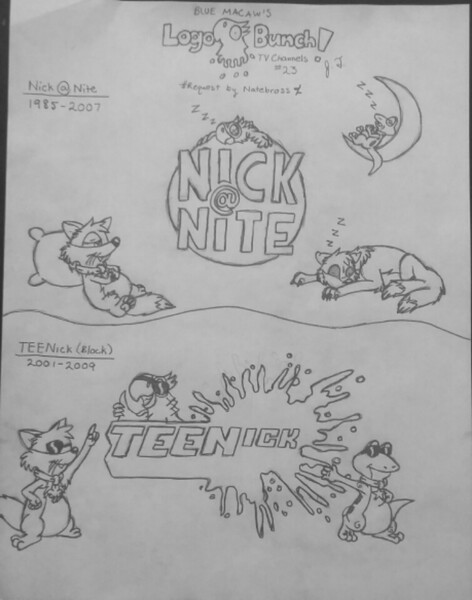 BLUE MACAW'S
Logo Bunch!
TV Channels
#23
*Request by Natebross*
Nick @ Nite
1985-2007
Z Z Z
Z Z Z
NICK
@
NITE
Z Z Z
TEENick (Block)
2001-2009
TEENICK